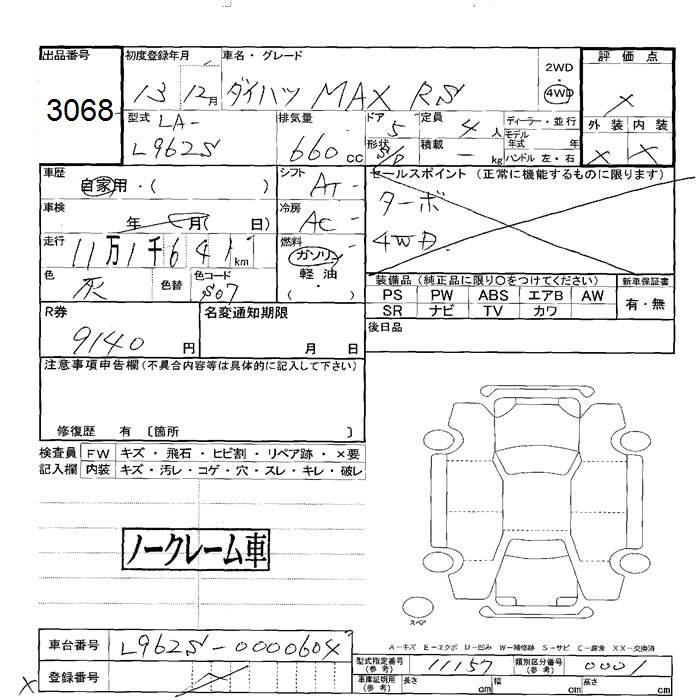 出品番号 初度登録年月 車名・グレード 2WD 評価点
3068 13 12月 ダイハツ MAX RS 4WD ×
型式 LA- 排気量 ドア 定員 ディーラー・並行 外装 内装
L962S 660cc 5 4人 モデル年式 年 × ×
形状 5/D 積載 - kg ハンドル 左・右
車歴 シフト セールスポイント (正常に機能するものに限ります)
自家用・( ) AT
車検 冷房 ターボ
年 月( 日) AC
走行 燃料 4WD
11万1千641km ガソリン
色 色替 色コード 軽油 装備品 (純正品に限り○をつけてください) 新車保証書
灰 S07 ・( ) PS PW ABS エアB AW 有・無
R券 名変通知期限 SR ナビ TV カワ
9140円 月 日 後日品
注意事項申告欄(不具合内容等は具体的に記入して下さい)
修復歴 有 〔箇所 〕
検査員 FW キズ・飛石・ヒビ割・リペア跡・×要
記入欄 内装 キズ・汚レ・コゲ・穴・スレ・キレ・破レ
ノークレーム車
スペア
A-キズ E-エクボ U-凹み W-補修跡 S-サビ C-腐食 XX-交換済
車台番号 L962S-0000604 型式指定番号(参考) 11157 類別区分番号(参考) 0001
× 登録番号 車庫証明用(参考) 長さ cm 幅 cm 高さ cm